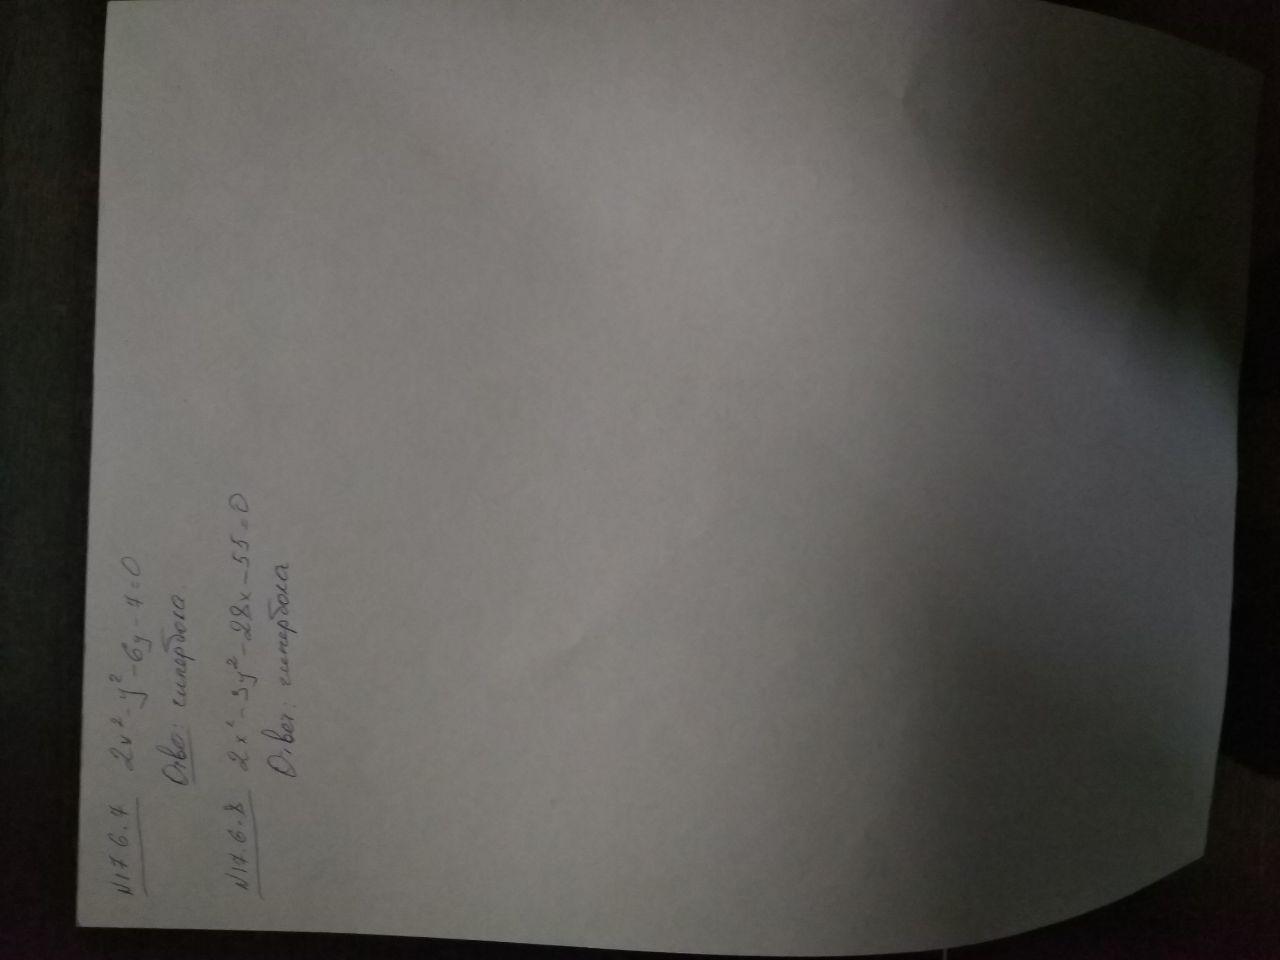 N17.6.7 2x² - y² - 6y - 7 = 0
Ответ: гипербола.
N17.6.8 2x² - 3y² - 28x - 55 = 0
Ответ: гипербола